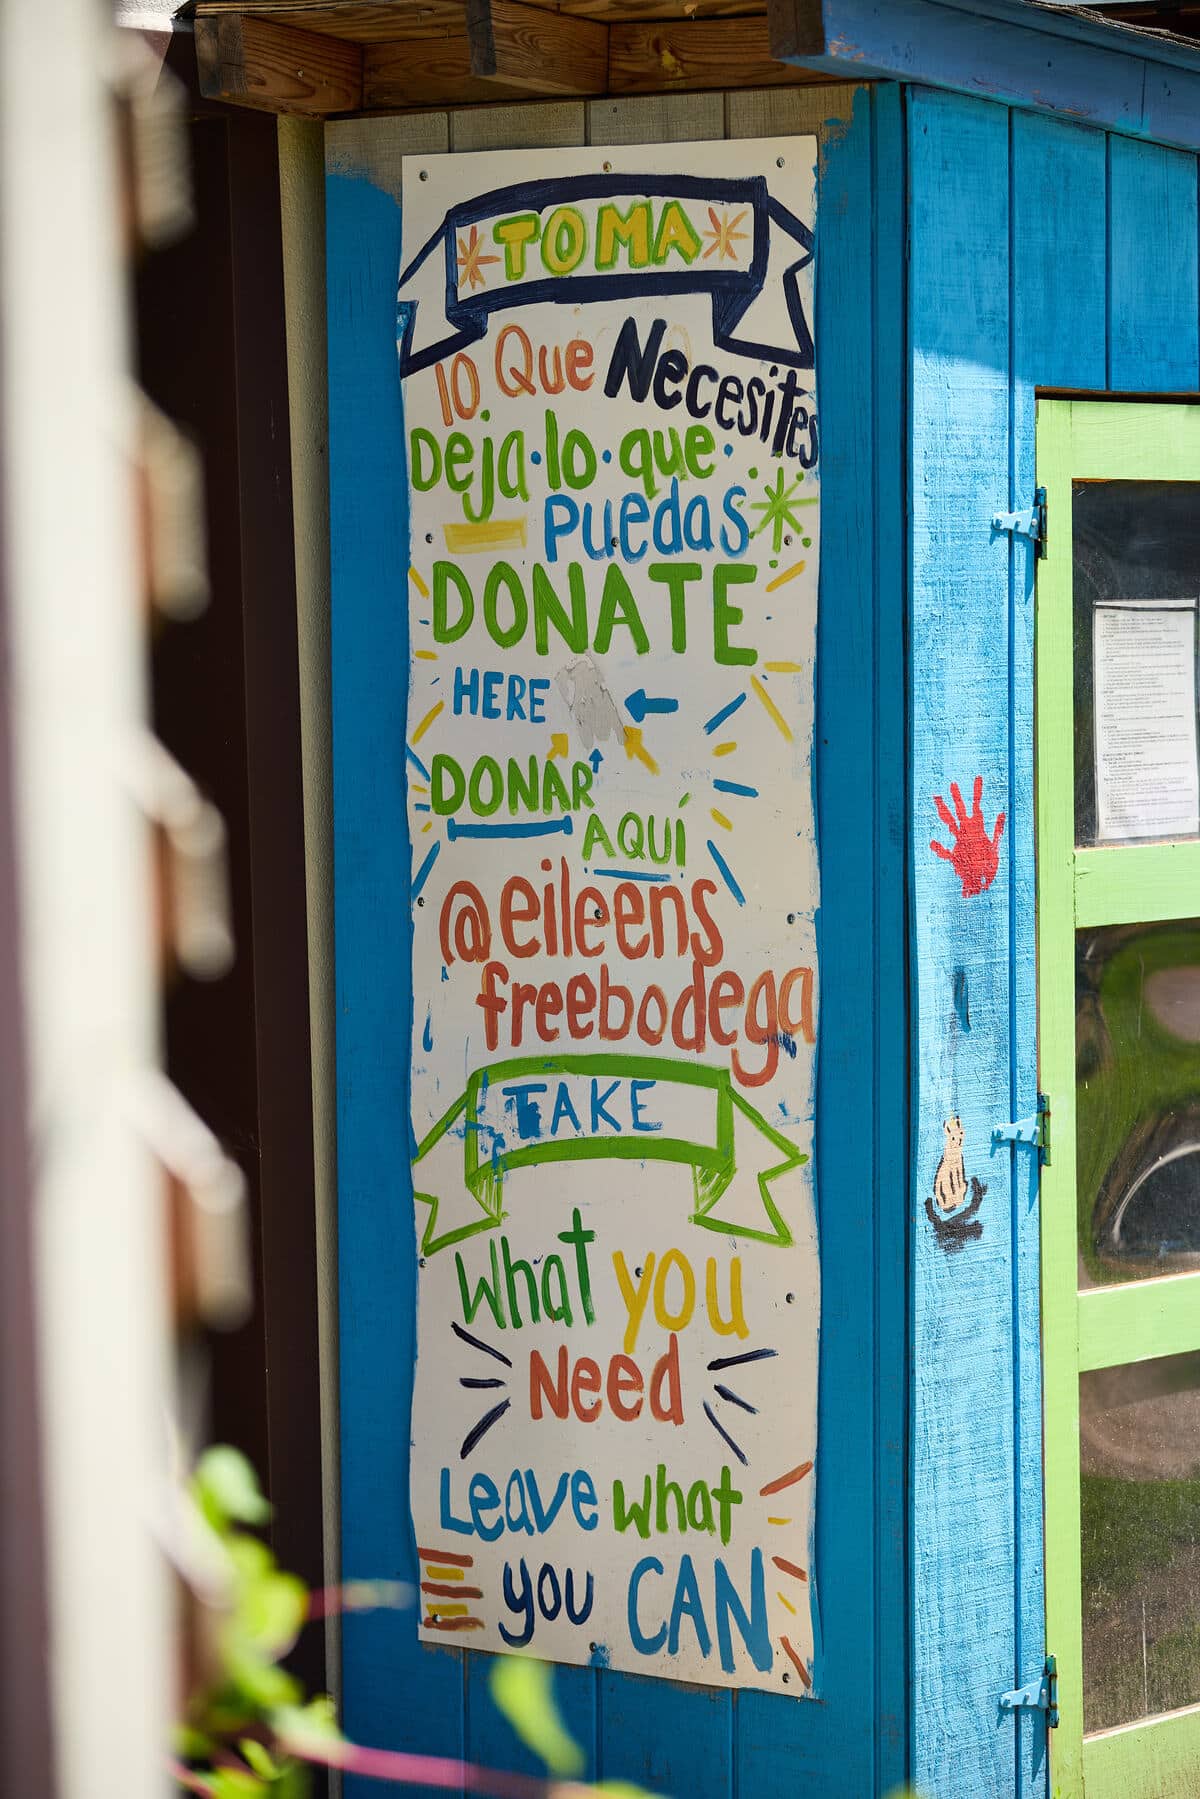 TOMA
lo Que Necesites
Deja·lo·que·
puedas
DONATE
HERE
DONAR
AQUÍ
@eileens
freebodega
TAKE
What you
Need
Leave what
you CAN